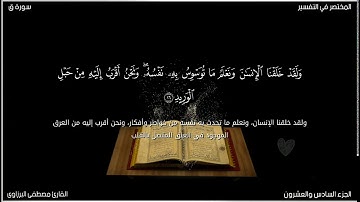 المختصر في التفسير
سورة ق
وَلَقَدْ خَلَقْنَا ٱلْإِنسَٰنَ وَنَعْلَمُ مَا تُوَسْوِسُ بِهِۦ نَفْسُهُۥ ۖ وَنَحْنُ أَقْرَبُ إِلَيْهِ مِنْ حَبْلِ
ٱلْوَرِيدِ ١٦
ولقد خلقنا الإنسان، ونعلم ما تحدث به نفسه من خواطر وأفكار، ونحن أقرب إليه من العرق
الموجود في العنق المتصل بالقلب
الجزء السادس والعشرون
القارئ مصطفى البرزاوي